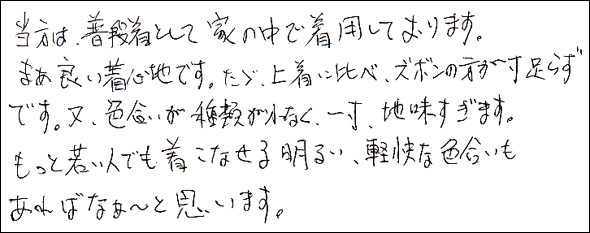 当方は、普段着として家の中で着用しております。
まあ良い着心地です。たゞ、上着に比べ、ズボンの方が寸足らず
です。又、色合いが種類が少なく、一寸、地味すぎます。
もっと若い人でも着こなせる明るい、軽快な色合いも
あればなぁ〜と思います。